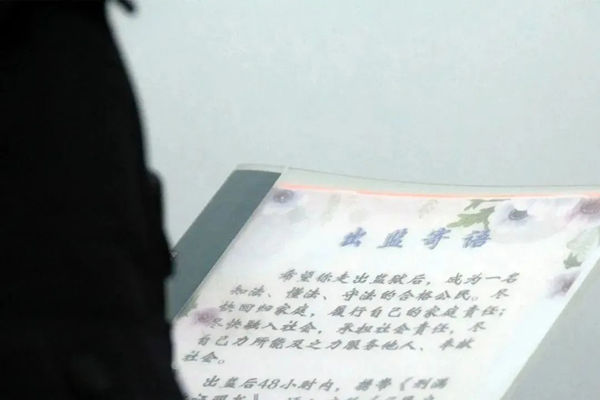 出监寄语
希望你走出监狱后，成为一名
知法、懂法、守法的合格公民。尽
快回归家庭，履行自己的家庭责任；
尽快融入社会，承担社会责任，尽
自己力所能及之力服务他人、奉献
社会。
出监后48小时内，携带《刑满